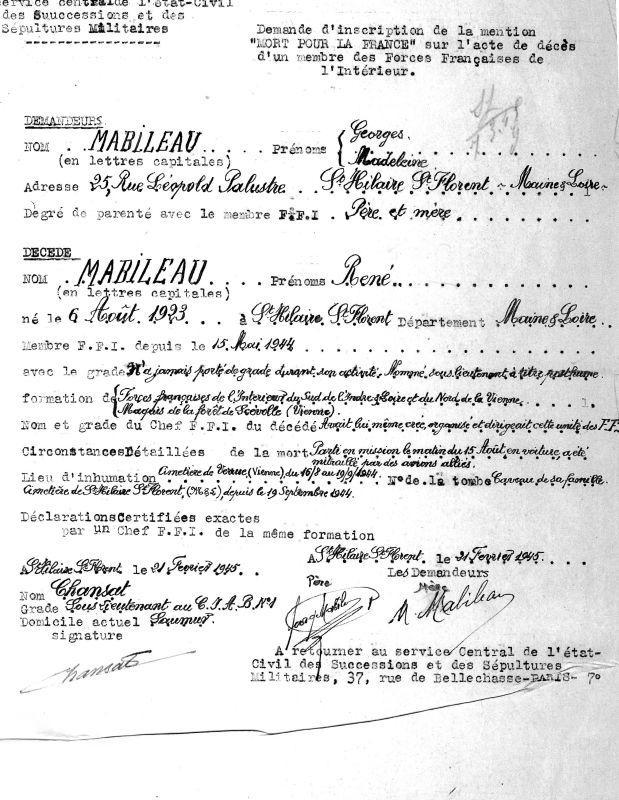 Service central de l'état-Civil
des Suuccessions et des
Sépultures Militaires
Demande d'inscription de la mention
"MORT POUR LA FRANCE" sur l'acte de décès
d'un membre des Forces Françaises de
l'Intérieur.
DEMANDEURS
NOM . . MABILEAU . . . . . Prénoms { Georges.
(en lettres capitales) Madeleine
Adresse 25, Rue Léopold Palustre . . St Hilaire St Florent - Maine & Loire -
Dégré de parenté avec le membre F.F.I . Père et mère .
DECEDE
NOM . . MABILEAU . . . . Prénoms René . .
(en lettres capitales)
né le 6 Août 1923 . . . à St Hilaire St Florent Département Maine & Loire . .
Membre F.F.I. depuis le 15 Mai 1944
avec le grade N'a jamais porté de grade durant son activité. Nommé sous-lieutenant à titre posthume
formation de { Forces françaises de l'Intérieur du Sud de l'Indre & Loire et du Nord de la Vienne
Maquis de la forêt de Scévolle (Vienne).
Nom et grade du Chef F.F.I. du décédé Avait lui même créé, organisé et dirigeait cette unité des F.F.
CirconstancesDétaillées de la mort Parti en mission le matin du 15 Août en voiture, a été
mitraillé par des avions alliés.
Lieu d'inhumation Cimetière de Verrue (Vienne), du 16/8 au 19/9/1944 N° de la tombe Caveau de sa famille
Cimetière de St Hilaire St Florent, (M&L), depuis le 19 Septembre 1944.
DéclarationsCertifiées exactes
par un Chef F.F.I. de la même formation
A St Hilaire St Florent le 21 Fevrier 1945 . . A St Hilaire St Florent. le 21 Fevrier 1945. . .
Les Demandeurs
Nom Chansat Père Mère
Grade Sous Lieutenant au C.I.A.B. N°1 M. Mabileau
Domicile actuel Saumur
signature
Chansat
A retourner au service Central de l'état-
Civil des Successions et des Sépultures
Militaires, 37, rue de Bellechasse-PARIS- 7°